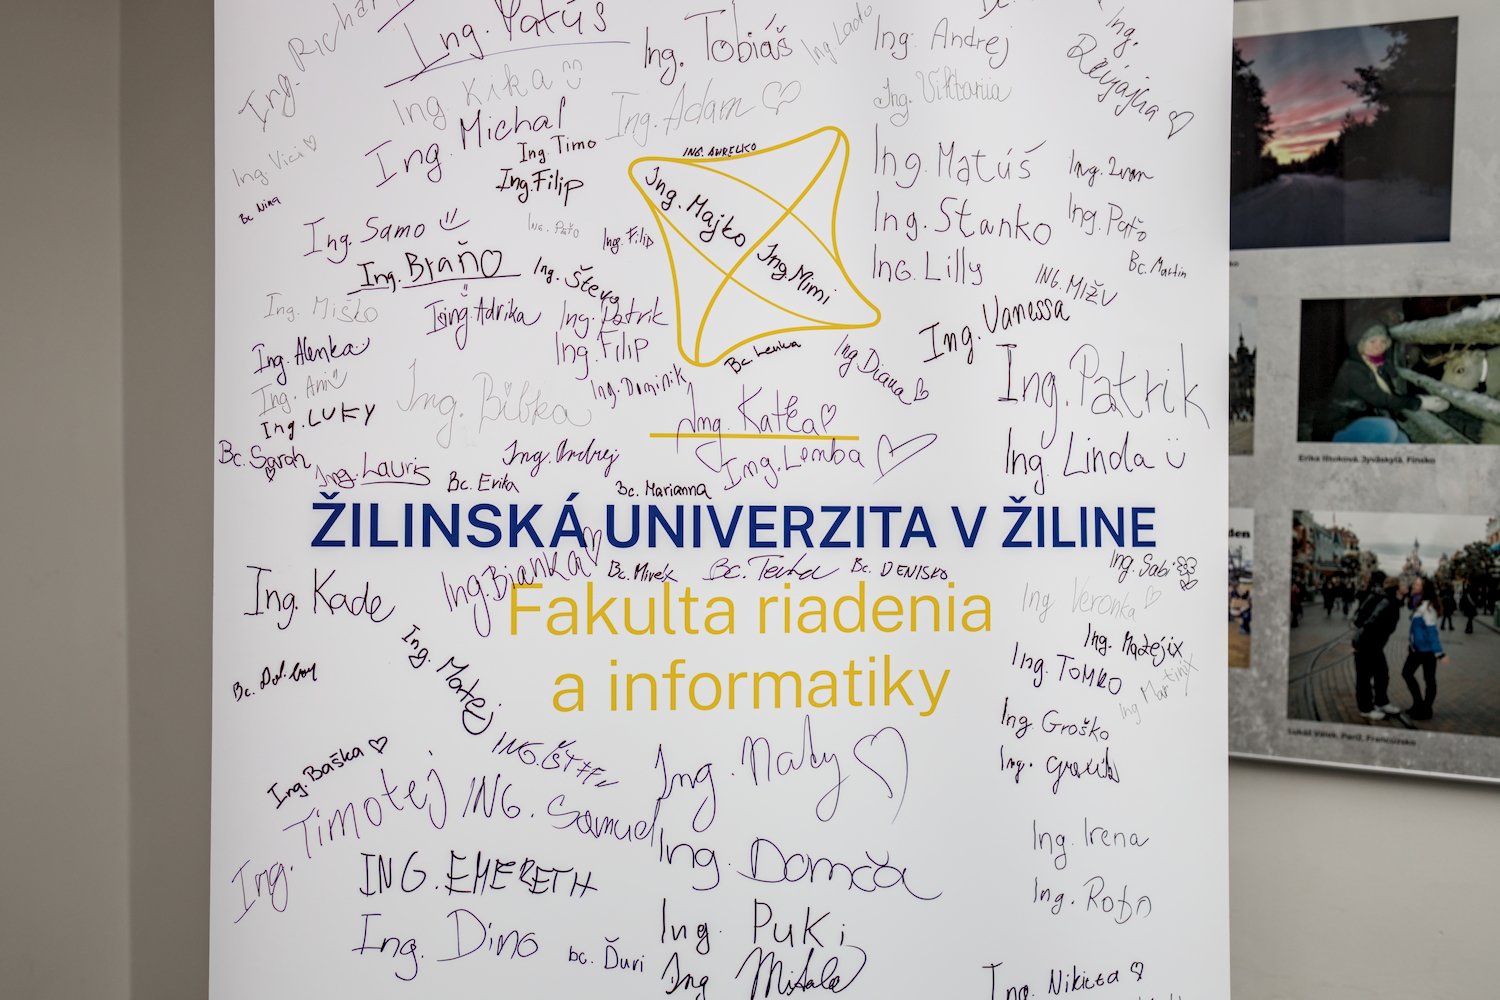 Ing. Matúš
Ing. Tobiáš
Ing. Lado
Ing. Andrej
Ing. Kika
Ing. Adam
Ing. Viktoriia
Ing. Michal
Ing. Timo
ING. AURELKO
Ing. Vici
Ing. Filip
Ing. Majko
Ing. Matúš
Ing. Ivan
Bc Nina
Ing. Samo
Ing. Paťo
Ing. Filip
Ing. Stanko
Ing. Paťo
Ing. Braňo
Ing. Števo
Ing. Mimi
ING. Lilly
Bc. Martin
ING. MIŽU
Ing. Miško
Ing. Adrika
Ing. Patrik
Ing. Vanessa
Ing. Alenka
Ing. Filip
Bc. Lenka
Ing Diana
Ing. Dominik
Ing. Patrik
Ing. LUKY
Ing. Bibka
Ing. Katka
Bc. Sarah
Ing. Lauris
Ing. Andrej
Ing. Lemba
Ing. Linda
Bc. Erika
Bc. Marianna
ŽILINSKÁ UNIVERZITA V ŽILINE
Ing. Kade
Ing. Bianka
Bc. Mirek
Bc. DENISKO
Ing. Sabi
Fakulta riadenia
Ing Veronka
a informatiky
Ing. Matej
Ing. Matejix
Ing. TOMKO
Ing Martinix
Ing. Groško
Ing. Baška
Ing. Naty
Ing. Timotej
ING. Samuel
Ing. Domča
Ing. Irena
ING. EMERETH
Ing. Robo
Ing. Dino
bc. Ďuri
Ing. PUKi
Ing. Nikieta
Erika Ištoková, Jyväskylä, Fínsko
Lukáš Válek, Paríž, Francúzsko